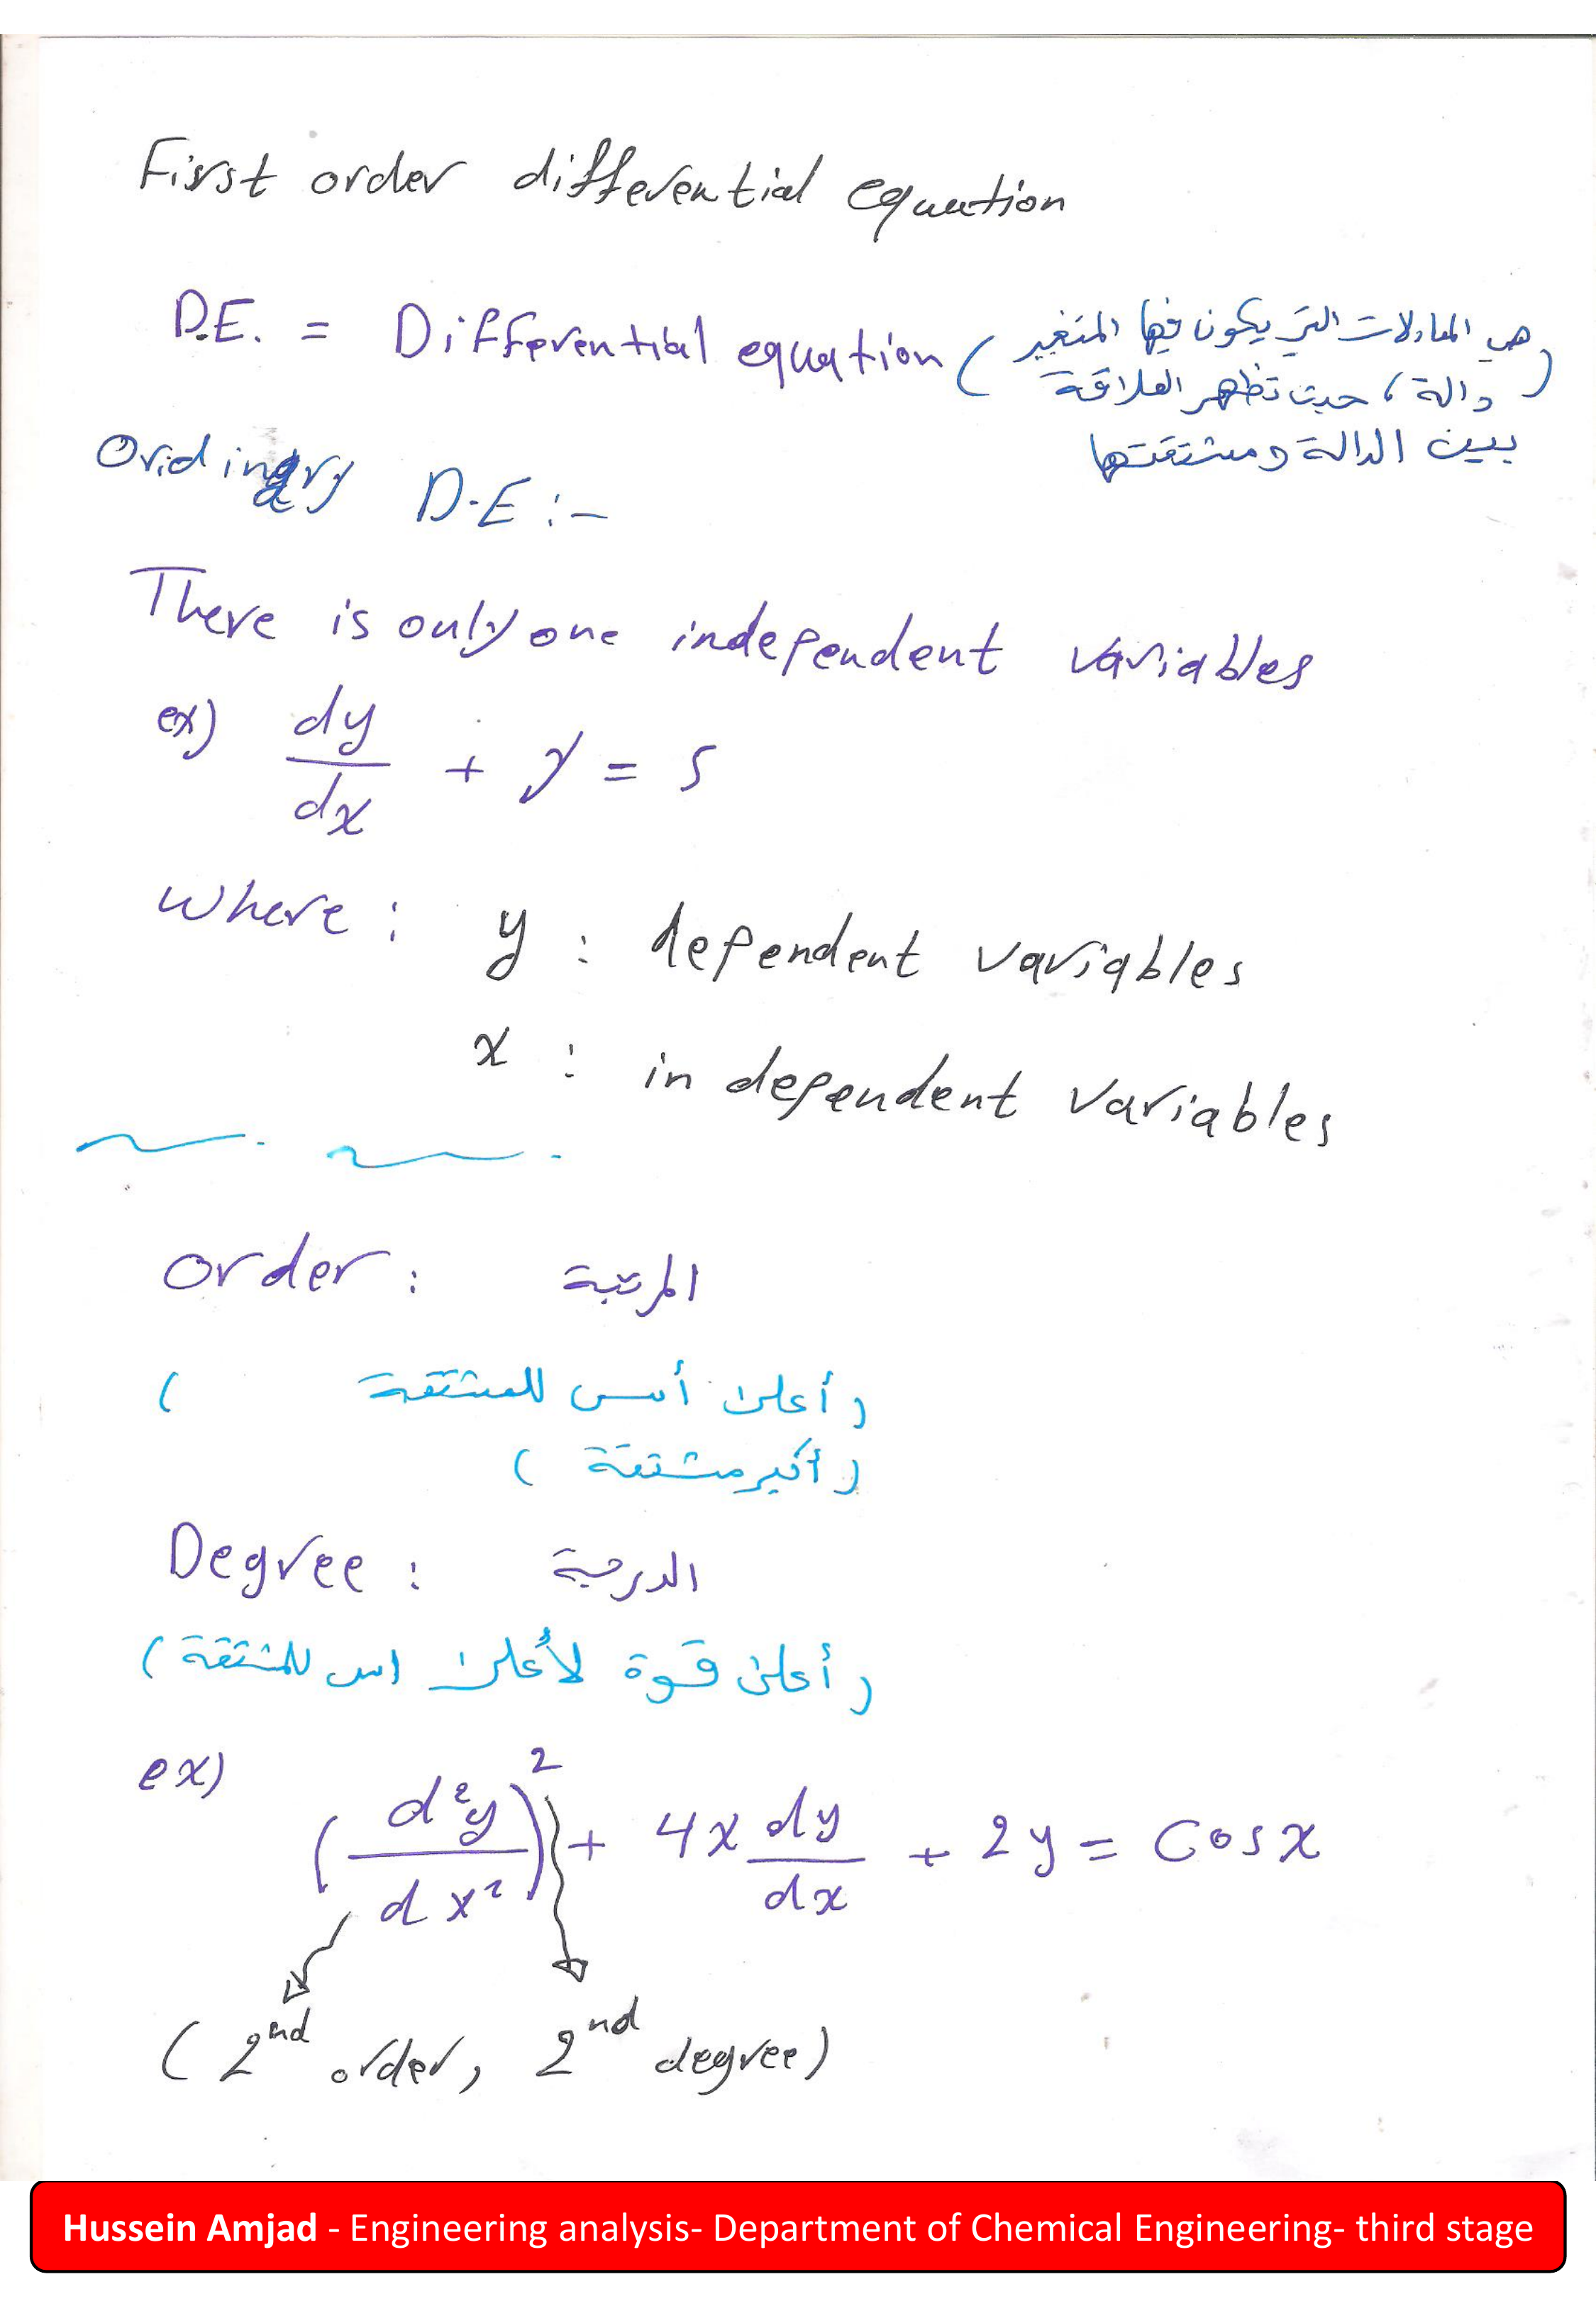 First order differential equation
D.E. = Differential equation (هي المعادلات التي يكون فيها المتغير
دالة ، حيث تظهر العلاقة)
بين الدالة ومشتقتها
Oridinary D.E :-
There is only one independent variables
ex) dy/dx + y = 5
where : y : dependent variables
x : in dependent variables
order : المرتبة
(أعلى أس للمشتقة)
(أكبر مشتقة)
Degree : الدرجة
(أعلى قوة لأعلى اس للمشتقة)
ex) (d²y/dx²)² + 4x dy/dx + 2y = Cosx
(2nd order, 2nd degree)
Hussein Amjad - Engineering analysis- Department of Chemical Engineering- third stage